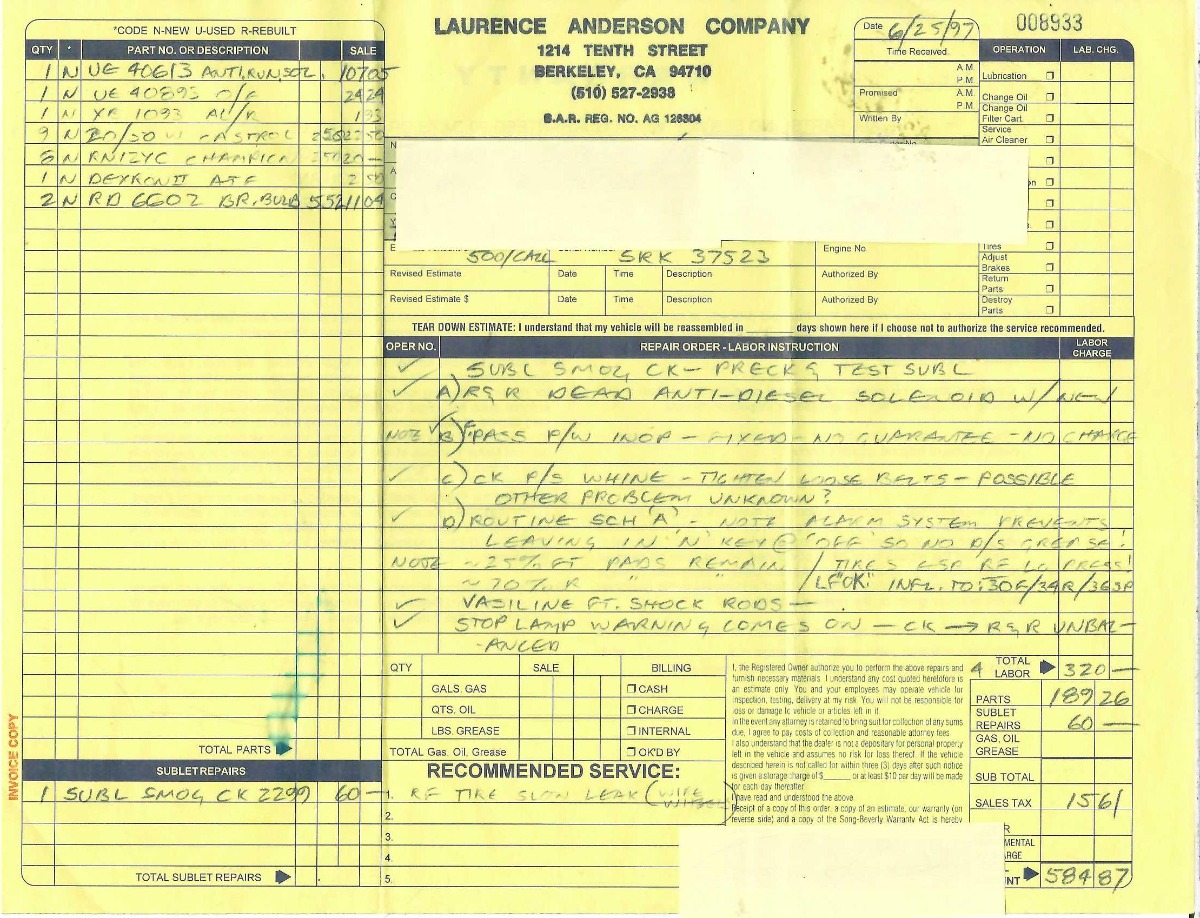 LAURENCE ANDERSON COMPANY
1214 TENTH STREET
BERKELEY, CA 94710
(510) 527-2938
B.A.R. REG. NO. AG 128804
Date 6/25/97
008933
Time Received
A.M.
P.M.
Promised A.M.
P.M.
Written By
*CODE N-NEW U-USED R-REBUILT
QTY * PART NO. OR DESCRIPTION SALE
1 N UE 40613 ANTI.RUN.SOL. 107 05
1 N UE 40893 O/F 24 24
1 N XE 1093 AL/R 1 93
9 N 20/50W CASTROL 250 22 50
8 N RN12YC CHAMPION 250 20 —
1 N DEXRON II ATF 2 50
2 N RD 6602 BR. BULB 552 11 04
OPERATION LAB. CHG.
Lubrication
Change Oil
Change Oil
Filter Cart.
Service
Air Cleaner
Tires
Adjust
Brakes
Return
Parts
Destroy
Parts
500/CALL SRK 37523
Engine No.
Revised Estimate Date Time Description Authorized By
Revised Estimate $ Date Time Description Authorized By
TEAR DOWN ESTIMATE: I understand that my vehicle will be reassembled in ______ days shown here if I choose not to authorize the service recommended.
OPER NO. REPAIR ORDER - LABOR INSTRUCTION LABOR CHARGE
✓ SUBL SMOG CK - PRECK & TEST SUBL
✓ A) R&R DEAD ANTI-DIESEL SOLENOID W/ NEW
NOTE ✓ B) F. PASS P/W INOP - FIXED - NO GUARANTEE - NO CHARGE
✓ C) CK P/S WHINE - TIGHTEN LOOSE BELTS - POSSIBLE
OTHER PROBLEM UNKNOWN?
✓ D) ROUTINE SCH 'A' - NOTE ALARM SYSTEM PREVENTS
LEAVING IN 'N' KEY @ 'OFF' SO NO D/S GREASE!
NOTE ~25% FT PADS REMAIN / TIRES ESP RF LO PRESS!
~70% R " " / LF "OK" INFL. TO: 30F/34R/36SP
✓ VASILINE FT. SHOCK RODS —
✓ STOP LAMP WARNING COMES ON - CK → R&R UNBAL-
-ANCED
QTY SALE BILLING
GALS. GAS CASH
QTS. OIL CHARGE
LBS. GREASE INTERNAL
TOTAL Gas, Oil, Grease OK'D BY
I, the Registered Owner authorize you to perform the above repairs and
furnish necessary materials. I understand any cost quoted heretofore is
an estimate only. You and your employees may operate vehicle for
inspection, testing, delivery at my risk. You will not be responsible for
loss or damage to vehicle or articles left in it.
In the event any attorney is retained to bring suit for collection of any sums
due, I agree to pay costs of collection and reasonable attorney fees.
I also understand that the dealer is not a depositary for personal property
left in the vehicle and assumes no risk for loss thereof. If the vehicle
described herein is not called for within three (3) days after such notice
is given a storage charge of $______ or at least $10 per day will be made
for each day thereafter.
I have read and understood the above.
Receipt of a copy of this order, a copy of an estimate, our warranty (on
reverse side) and a copy of the Song-Beverly Warranty Act is hereby
4 TOTAL LABOR 320 —
PARTS 189 26
SUBLET REPAIRS 60 —
GAS, OIL GREASE
SUB TOTAL
SALES TAX 15 61
584 87
INVOICE COPY
TOTAL PARTS
SUBLET REPAIRS
1 SUBL SMOG CK 2299 60 —
TOTAL SUBLET REPAIRS
RECOMMENDED SERVICE:
1. RF TIRE SLOW LEAK (WIRE WHEEL)
2.
3.
4.
5.